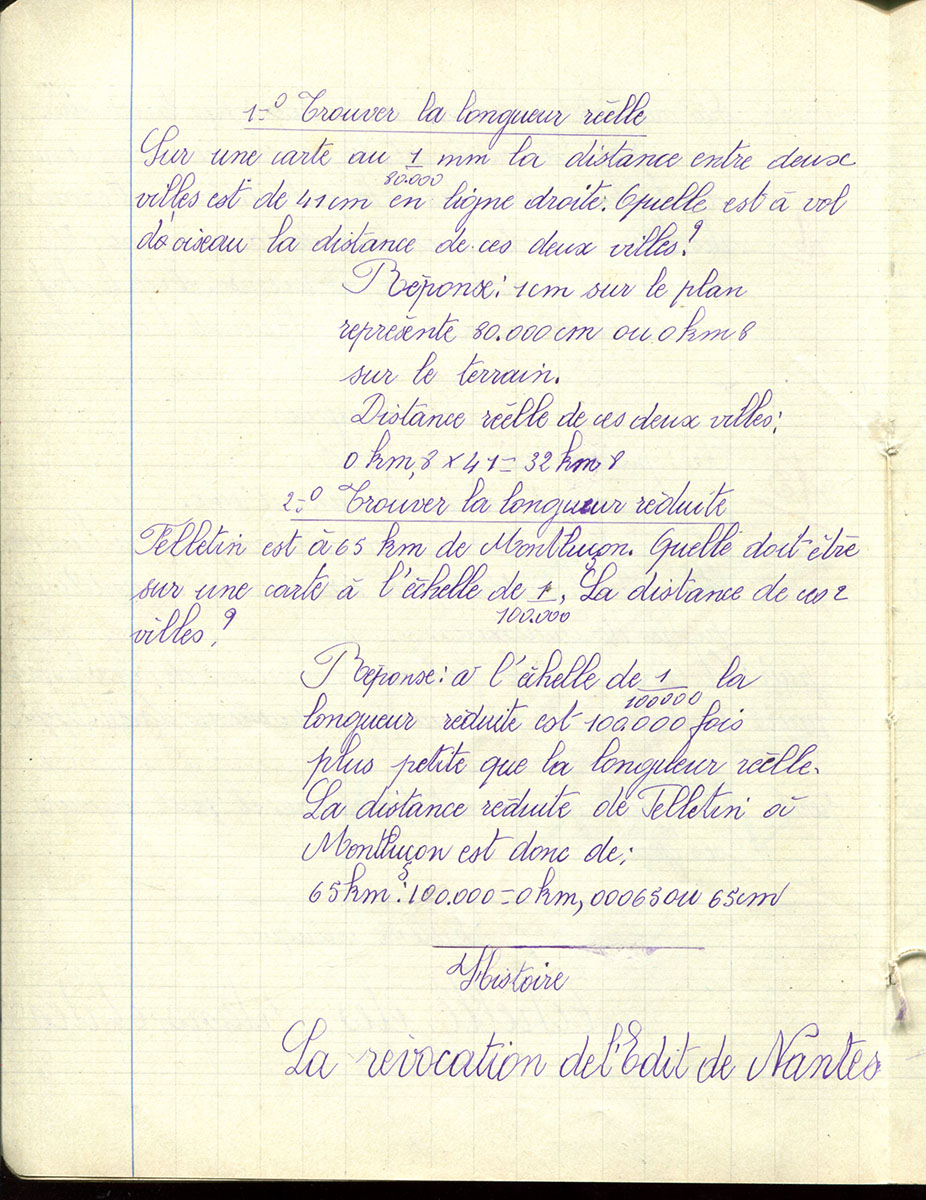 1-° Trouver la longueur réelle
Sur une carte au 1/80.000 mm la distance entre deux
villes est de 41cm en ligne droite. Quelle est à vol
d'oiseau la distance de ces deux villes?
Réponse: 1cm sur le plan
représente 80.000cm ou 0km8
sur le terrain.
Distance réelle de ces deux villes:
0km,8 × 41 = 32km,8
2-° Trouver la longueur réduite
Felletin est à 65 km de Montluçon. Quelle doit être
sur une carte à l'échelle de 1/100.000. La distance de ces 2
villes?
Réponse: à l'échelle de 1/100000 la
longueur réduite est 100.000 fois
plus petite que la longueur réelle.
La distance réduite de Felletin à
Montluçon est donc de:
65km:100.000=0km,00065ou 65cm
Histoire
La révocation de l'Edit de Nantes